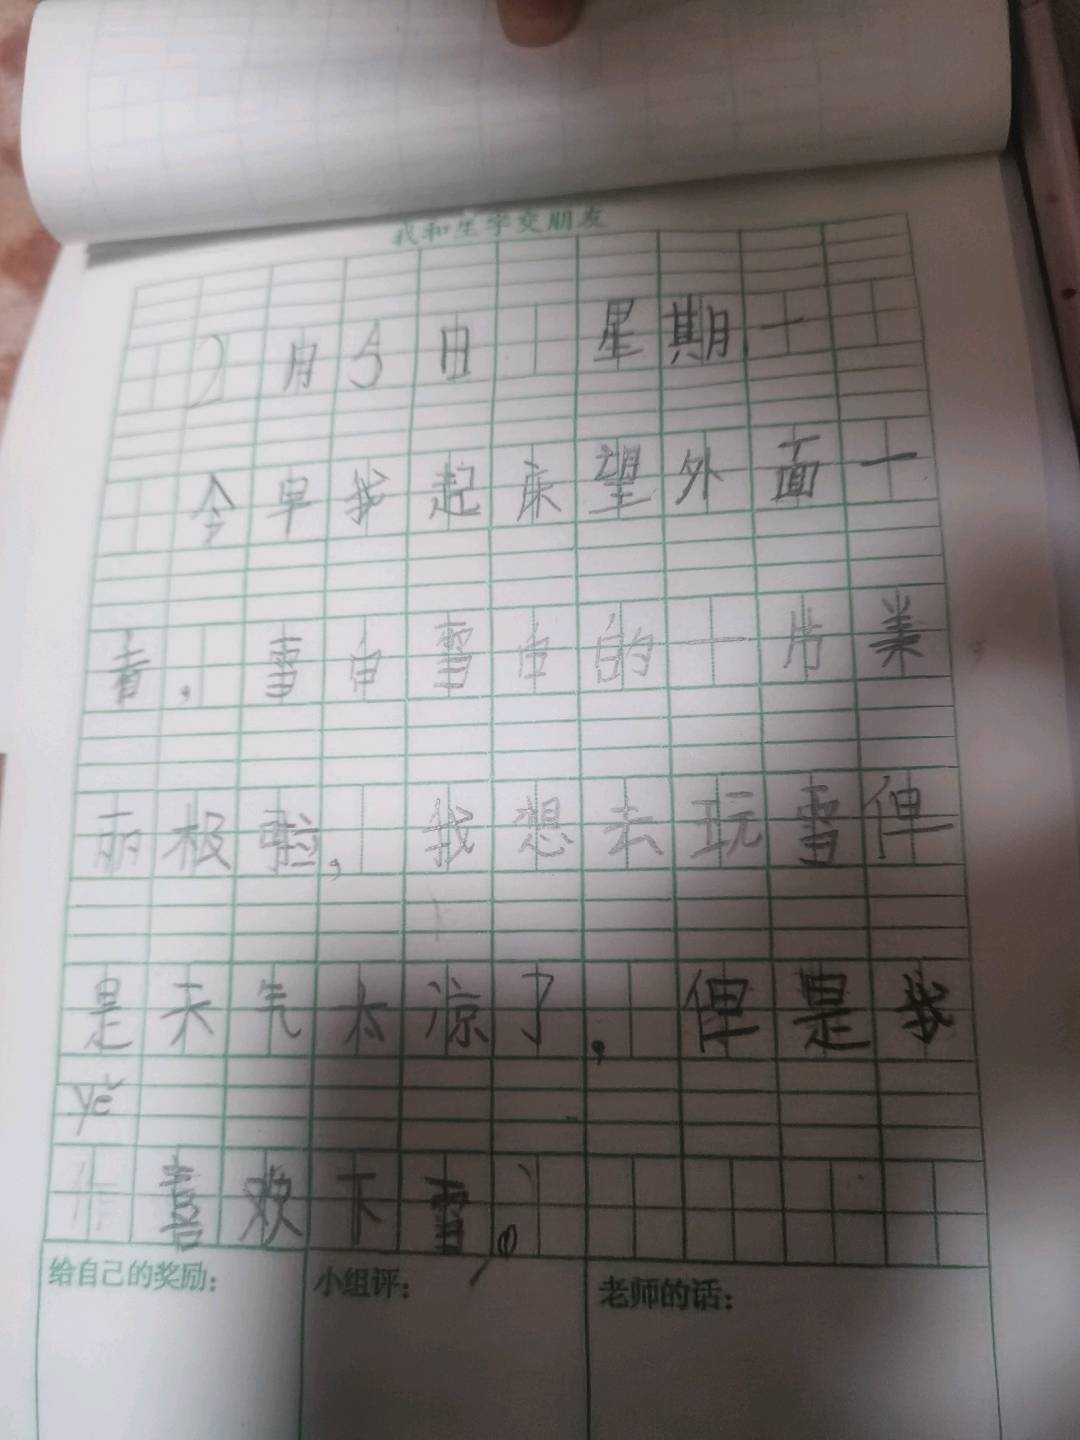 我和生字交朋友
2月5日 星期一
今早我起床望外面一
看,雪白雪白的一片美
丽极啦,我想去玩雪但
是天气太凉了,但是我
yě
喜欢下雪。
给自己的奖励: 小组评: 老师的话: